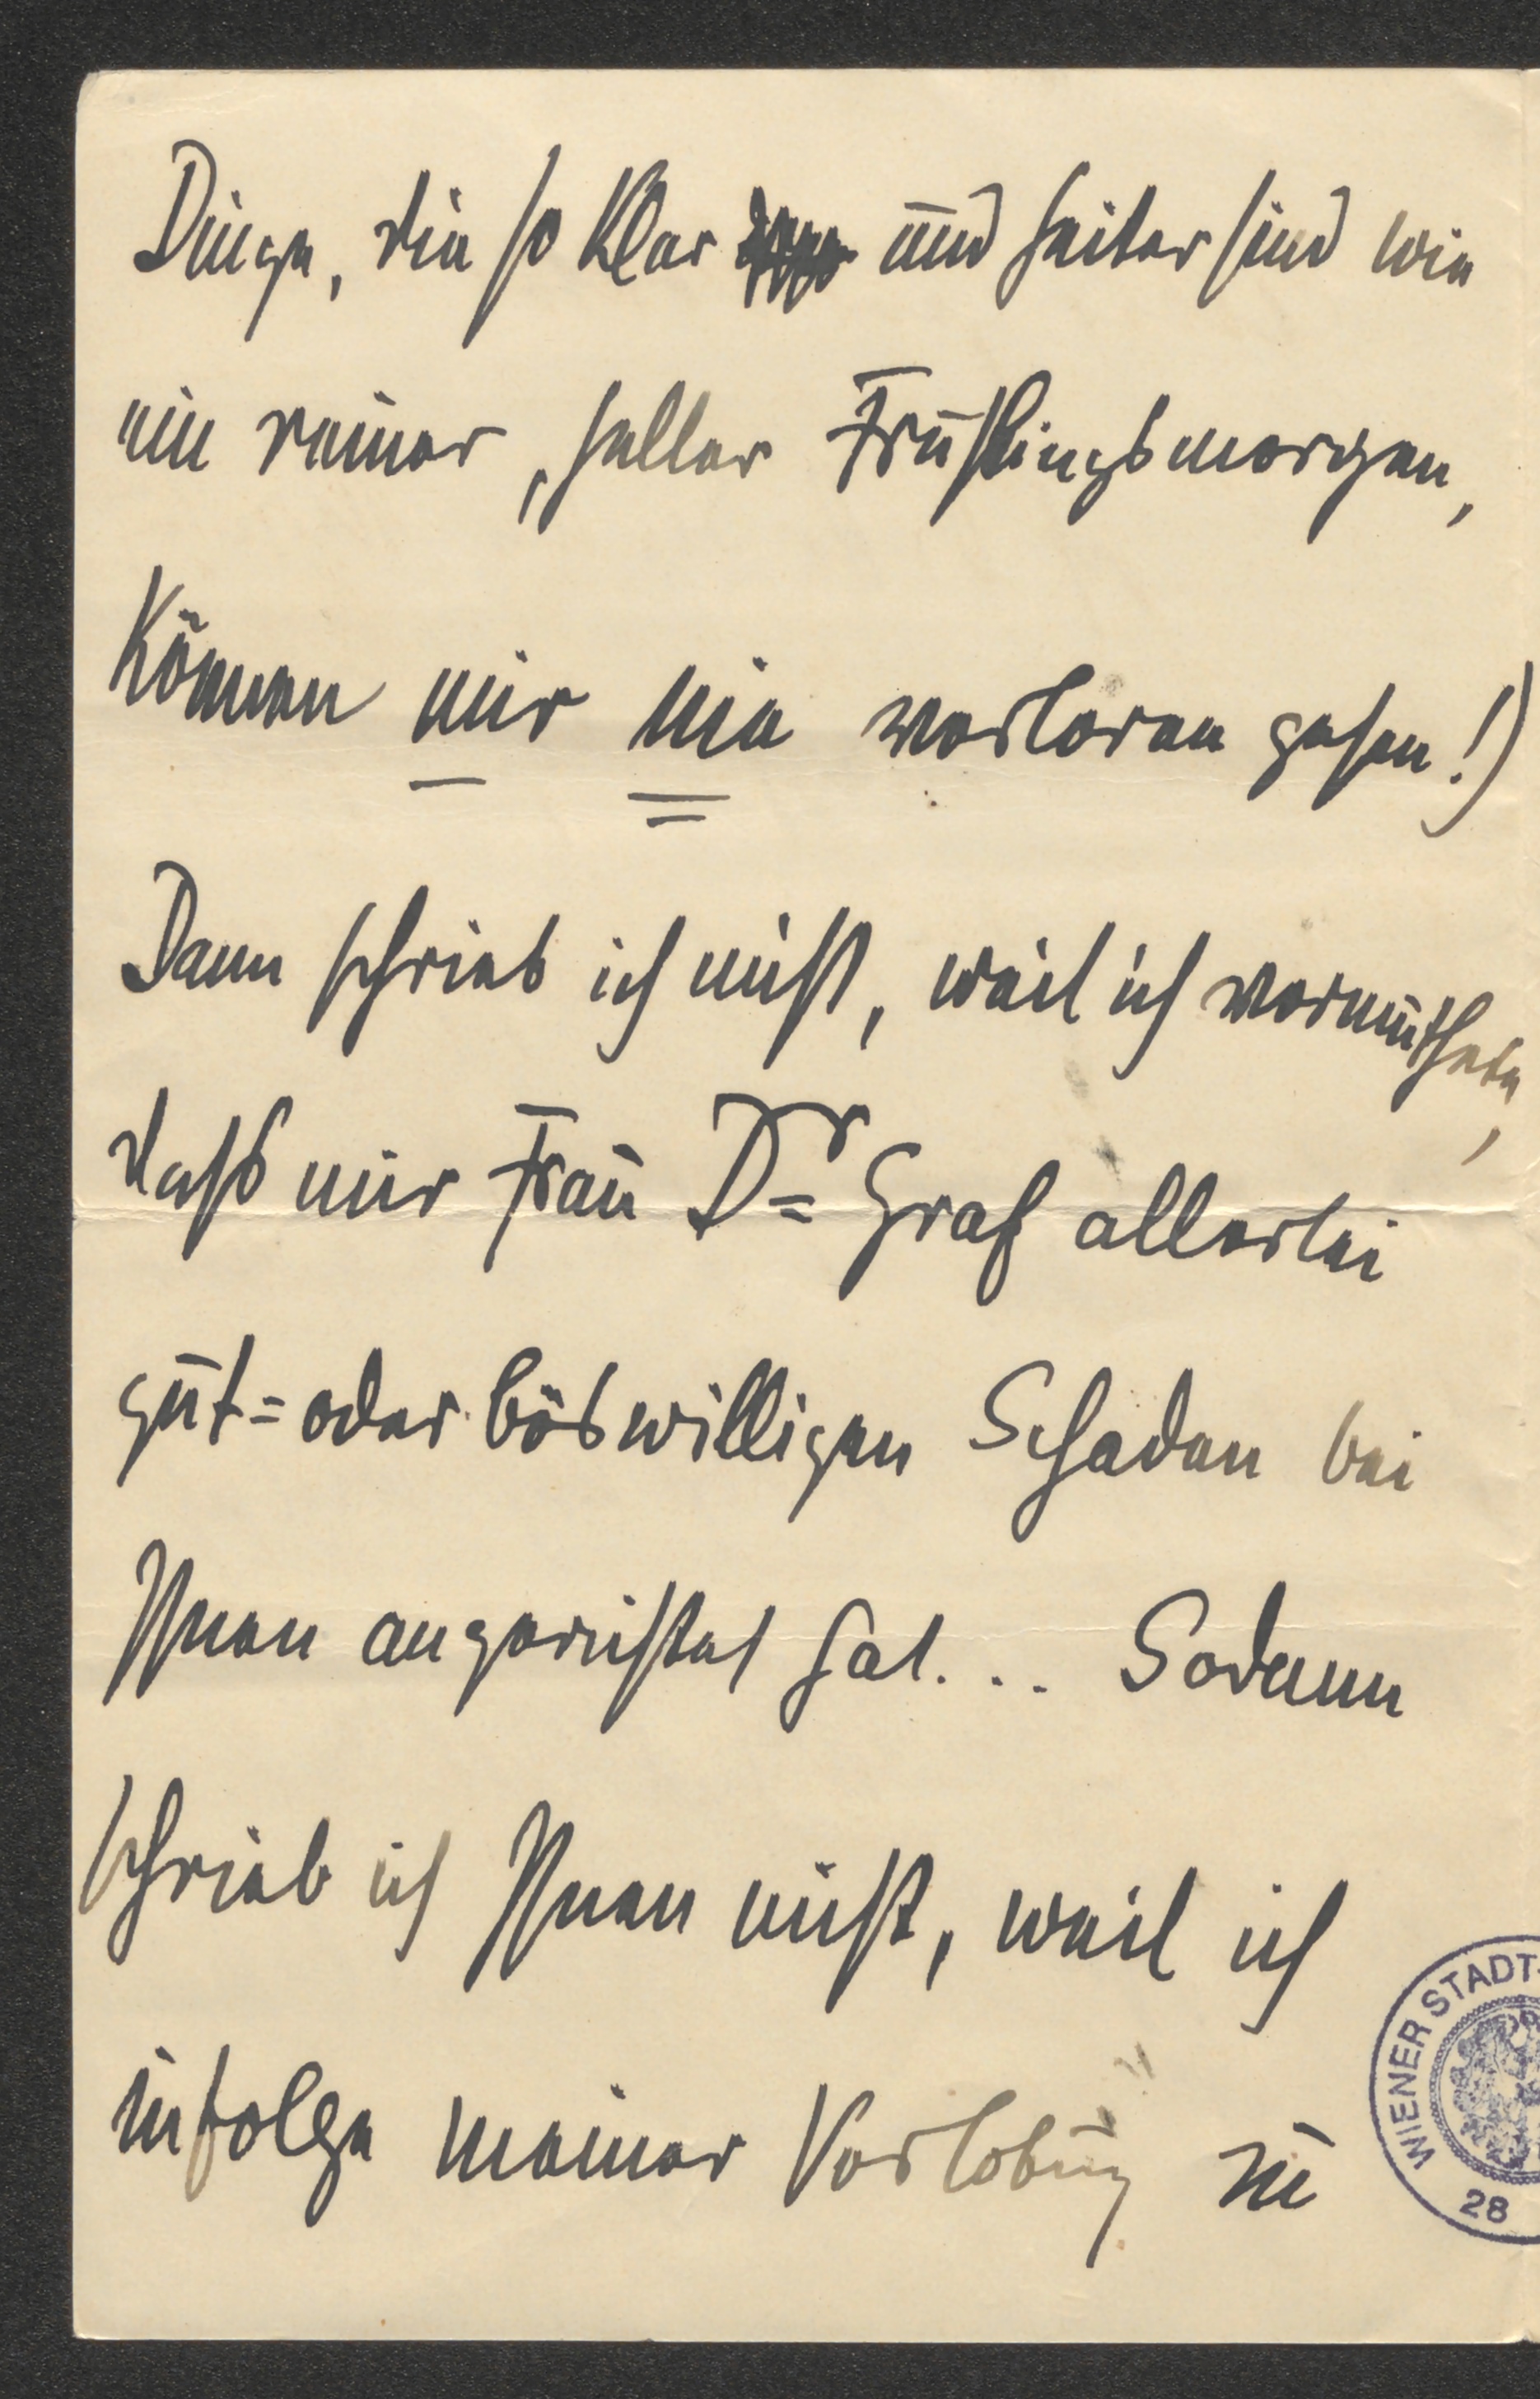 Dinge, die so klar und heiter sind wie
ein reiner, heller Frühlingsmorgen,
können mir nie verloren gehen!)
Dann schrieb ich nicht, weil ich vermuthete,
dass mir Frau Dr Graf allerlei
gut= oder böswilligen Schaden bei
Ihnen angerichtet hat... Sodann
schrieb ich Ihnen nicht, weil ich
infolge meiner Verlobung zu
WIENER STADT-
28